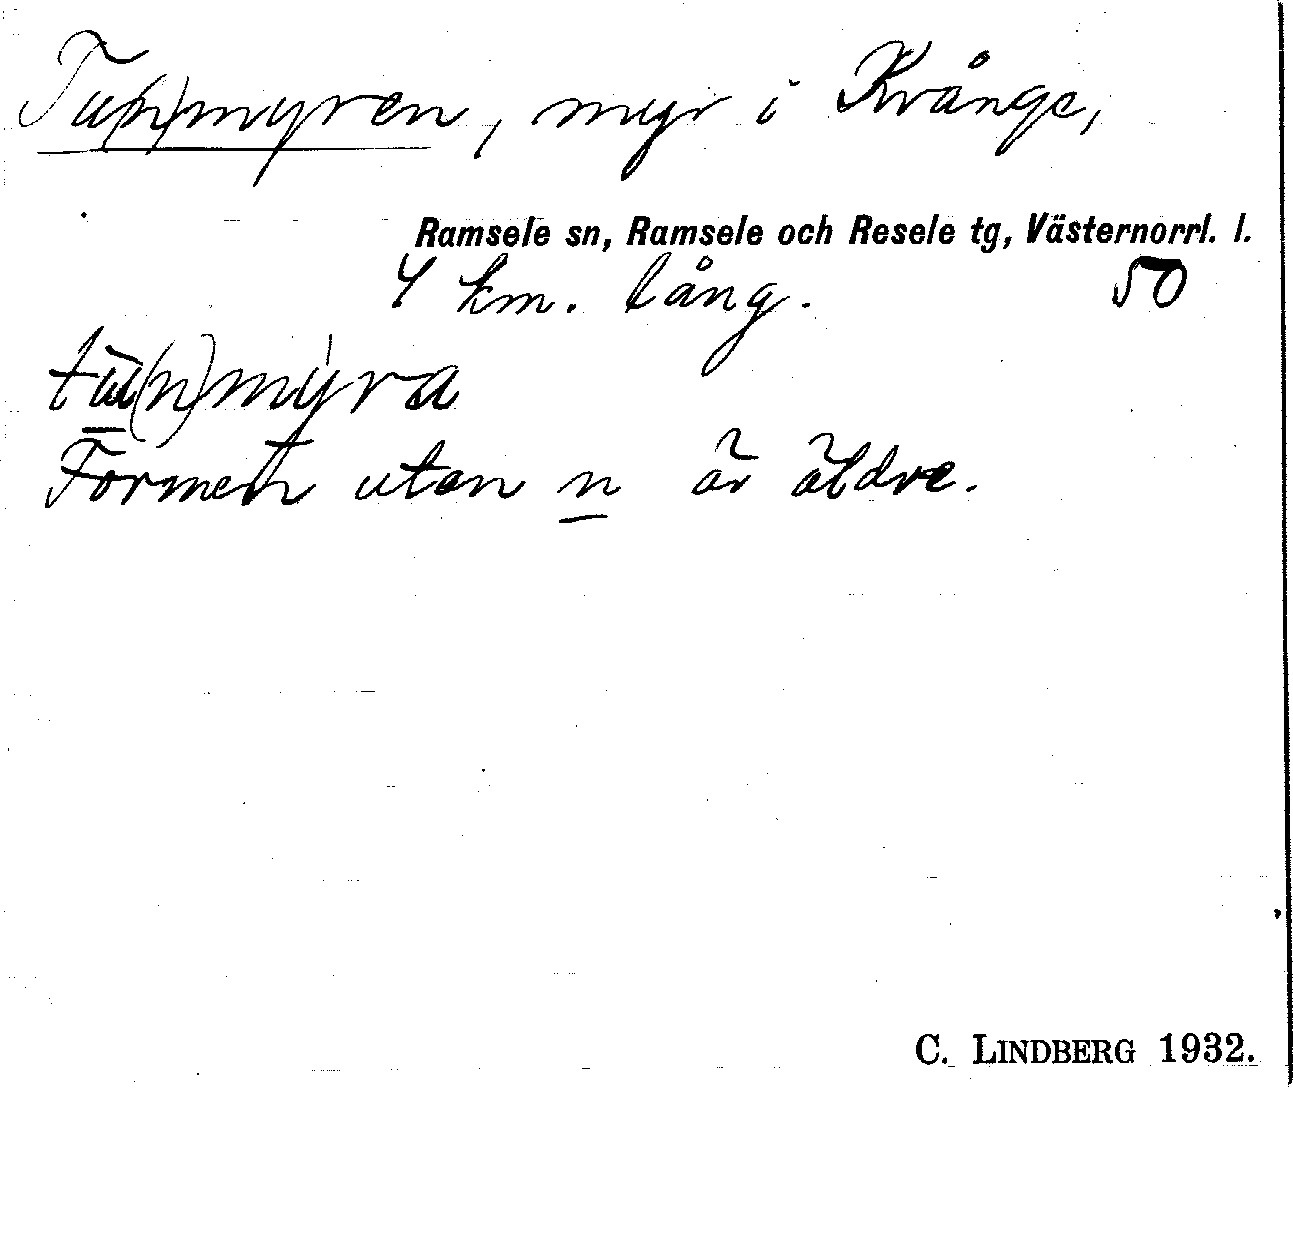 Tu(n)myren, myr i Krånge,
Ramsele sn, Ramsele och Resele tg, Västernorrl. l.
4 km. lång. 50
tū(n)mýra
Formen utan n är äldre.
C. LINDBERG 1932.